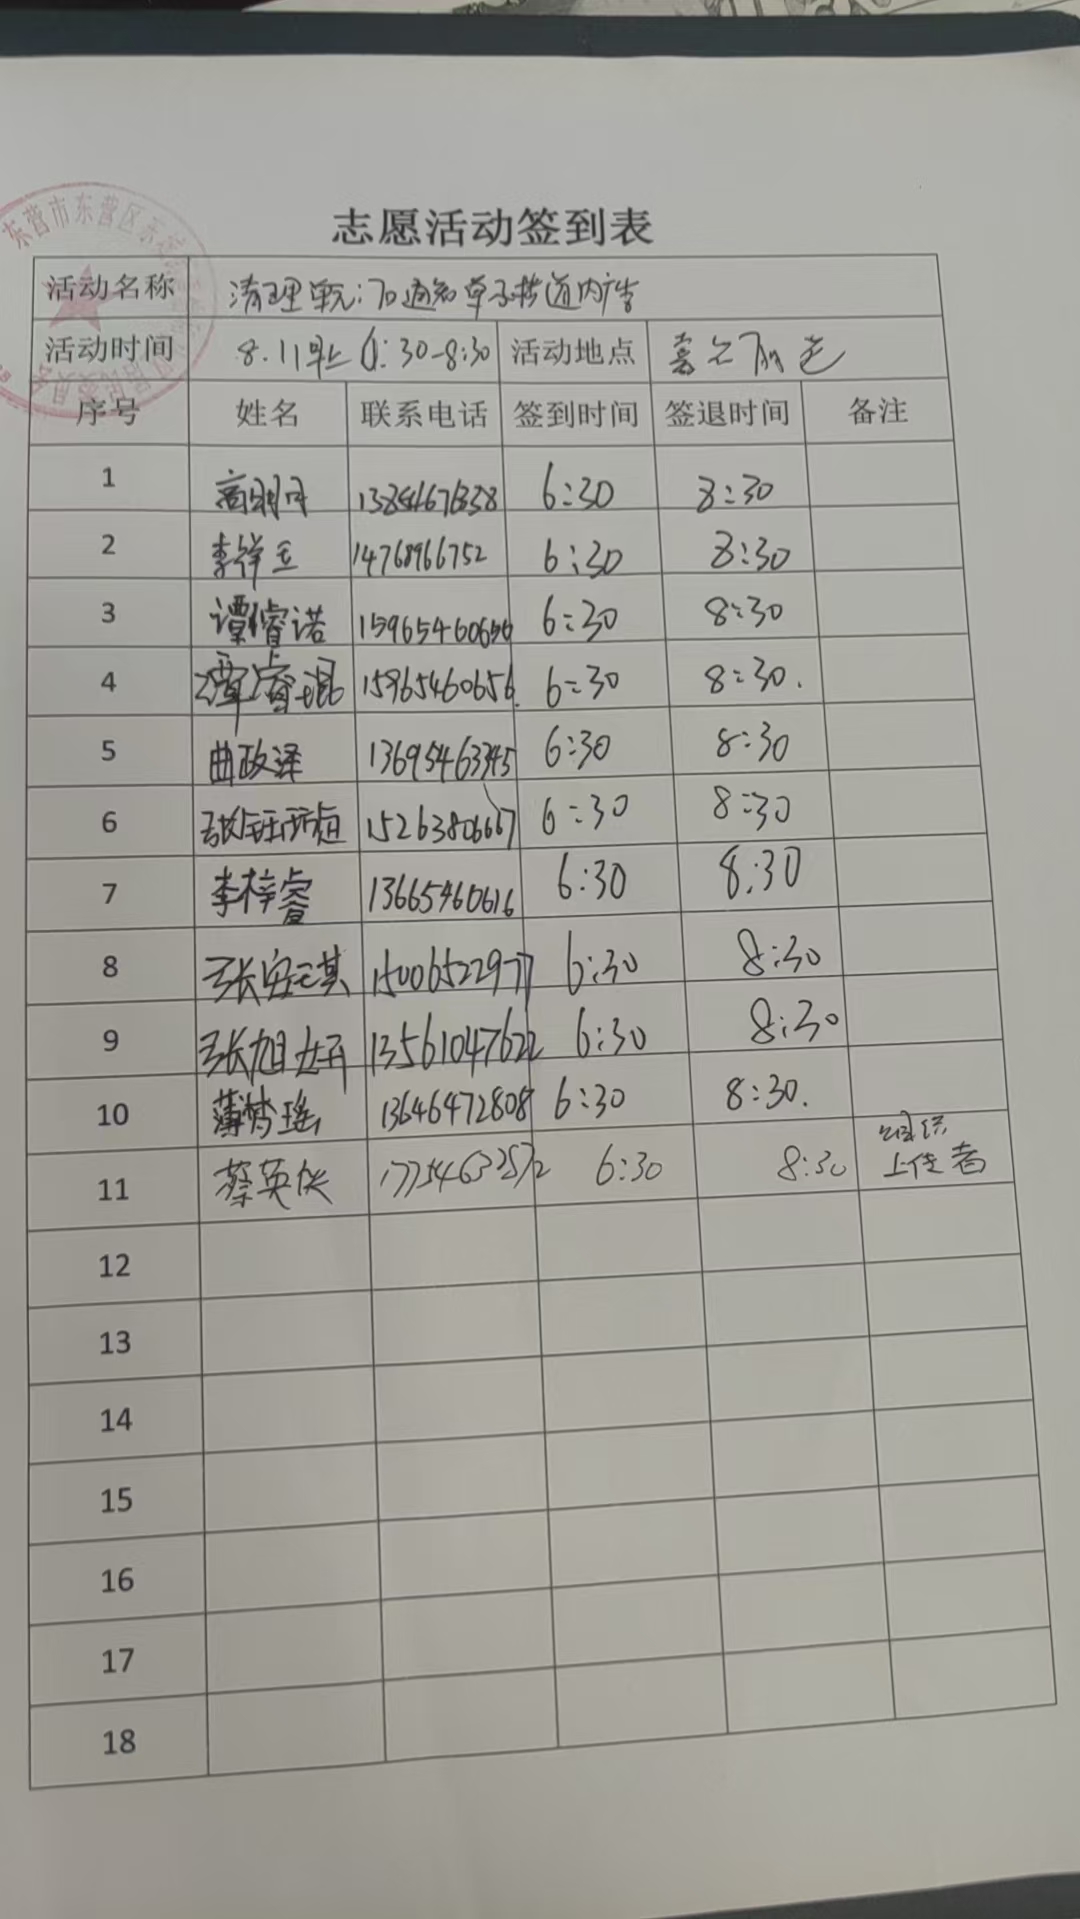 东营市东营区东
志愿活动签到表
活动名称 清理单元:门通知单子楼道内广告
活动时间 8.11早上6:30-8:30 活动地点
序号 姓名 联系电话 签到时间 签退时间 备注
1 高明月 6:30 8:30
2 李祥玉 14768966752 6:30 8:30
3 谭睿诺 15965460656 6:30 8:30
4 谭睿琨 15965460656. 6:30 8:30.
5 曲政泽 13695463345 6:30 8:30
6 15263806667 6:30 8:30
7 李梓睿 13665460616 6:30 8:30
8 张安琪 15006522977 6:30 8:30
9 张旭冉 13561047622 6:30 8:30
10 薄梦瑶 13646472808 6:30 8:30.
11 蔡英俠 17754632572 6:30 8:30 组织
上传者
12
13
14
15
16
17
18